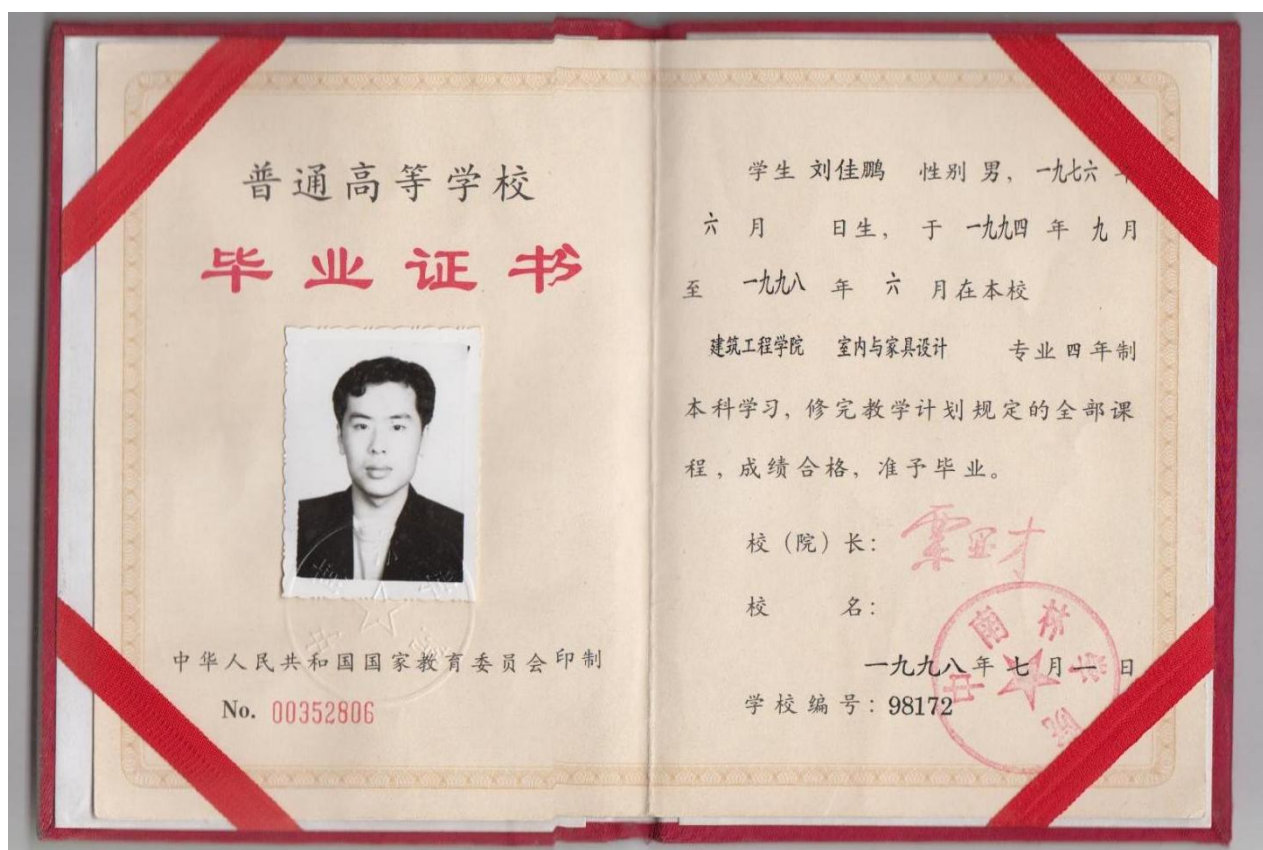 普通高等学校
毕业证书
中华人民共和国国家教育委员会印制
No. 00352806
学生 刘佳鹏 性别 男，一九七六
六 月 日生，于 一九九四 年 九 月
至 一九九八 年 六 月在本校
建筑工程学院 室内与家具设计 专业 四 年制
本科学习，修完教学计划规定的全部课
程，成绩合格，准予毕业。
校（院）长：
校 名：
中南林学院
一九九八 年 七 月 一 日
学校编号：98172